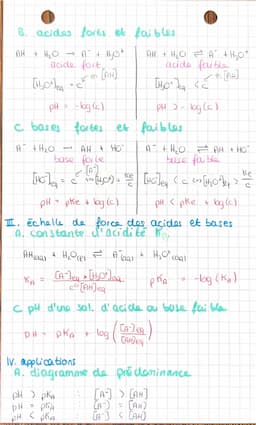 B. acides forts et faibles
AH + H₂O → A⁻ + H₃O⁺
acide fort
[H₃O⁺]eq = c [AH]
pH = -log(c)
AH + H₂O ⇌ A⁻ + H₃O⁺
acide faible
[H₃O⁺]eq < c [AH]
pH > -log(c)
C. bases fortes et faibles
A⁻ + H₂O → AH + HO⁻
base forte
[HO⁻]eq = c [A⁻] [H₃O⁺] = Ke/c
pH = pKe + log(c)
A⁻ + H₂O ⇌ AH + HO⁻
base faible
[HO⁻]eq < c [H₃O⁺]eq > Ke/c
pH < pKe + log(c)
III. Échelle de force des acides et bases
A. constante d'acidité KA
AH(aq) + H₂O(l) ⇌ A⁻(aq) + H₃O⁺(aq)
KA = [A⁻]eq × [H₃O⁺]eq / c° [AH]eq pKA = -log(KA)
C. pH d'une sol. d'acide ou base faible
pH = pKA + log ([A⁻]eq / [AH]eq)
IV. applications
A. diagramme de prédominance
pH > pKA : [A⁻] > [AH]
pH = pKA : [A⁻] = [AH]
pH < pKA : [A⁻] < [AH]